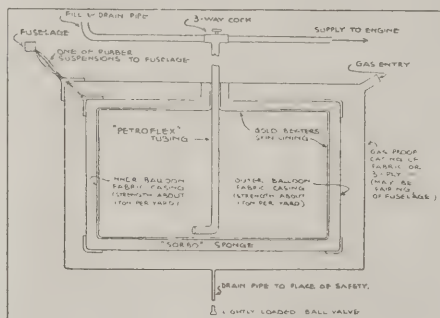 FILL & DRAIN PIPE
3-WAY COCK
FUSELAGE
SUPPLY TO ENGINE
ONE OF RUBBER
SUSPENSIONS TO FUSELAGE
GAS ENTRY
"PETROFLEX"
TUBING
GOLD BEATERS
SKIN LINING
INNER BALLOON
FABRIC CASING
(STRENGTH ABOUT
1 TON PER YARD)
OUTER BALLOON
FABRIC CASING
(STRENGTH ABOUT
1 TON PER YARD)
GAS PROOF
CASING OF
FABRIC OR
3-PLY
(MAY BE
FAIRING
OF FUSELAGE)
"SORBO" SPONGE
DRAIN PIPE TO PLACE OF SAFETY.
LIGHTLY LOADED BALL VALVE